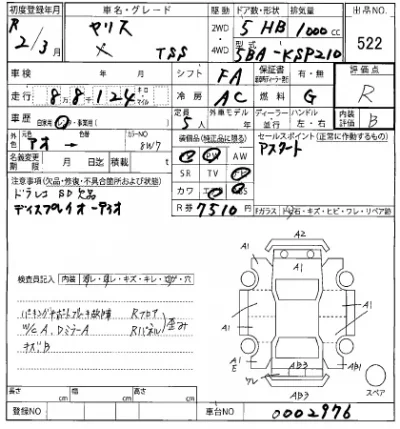 初度登録年月 車名・グレード 駆動 ドア数・形状 排気量 出品NO.
R 2/3月 ヤリス X TSS 2WD 4WD 5 HB 1000cc 522
型式 5BA-KSP210
車検 年 月 シフト FA 保証書 有・無 評価点
走行 88124 冷房 AC 燃料 G R
車歴 自家用 定員 5人 外車モデル 年 ディーラー 並行 ハンドル 左・右 内装評価 B
外色 元色 アオ → 色替 カラーNO 8W7 装備品(純正品に限る) セールスポイント(正常に作動するもの)
名義変更期限 月 日迄 積載 t AW Pスタート
注意事項(欠品・修復・不具合箇所および状態) SR TV
ドラレコ SD欠品 カワ
ディスプレイオーディオ R券 7510円 Fガラス 石・キズ・ヒビ・ワレ・リペア跡
検査員記入 内装
Rフロア
W/C A、DミラーA Rパネル 歪み
キズB
A2
A1 A1 A1
A1 A1
A1 E AB3 AB1
ワレ AB3 スペア
長さ cm 幅 cm 高さ cm
登録NO 車台NO 0002976